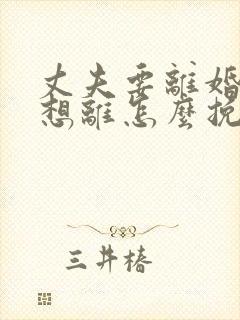 丈夫要離婚
想離怎麼挽
三井椿